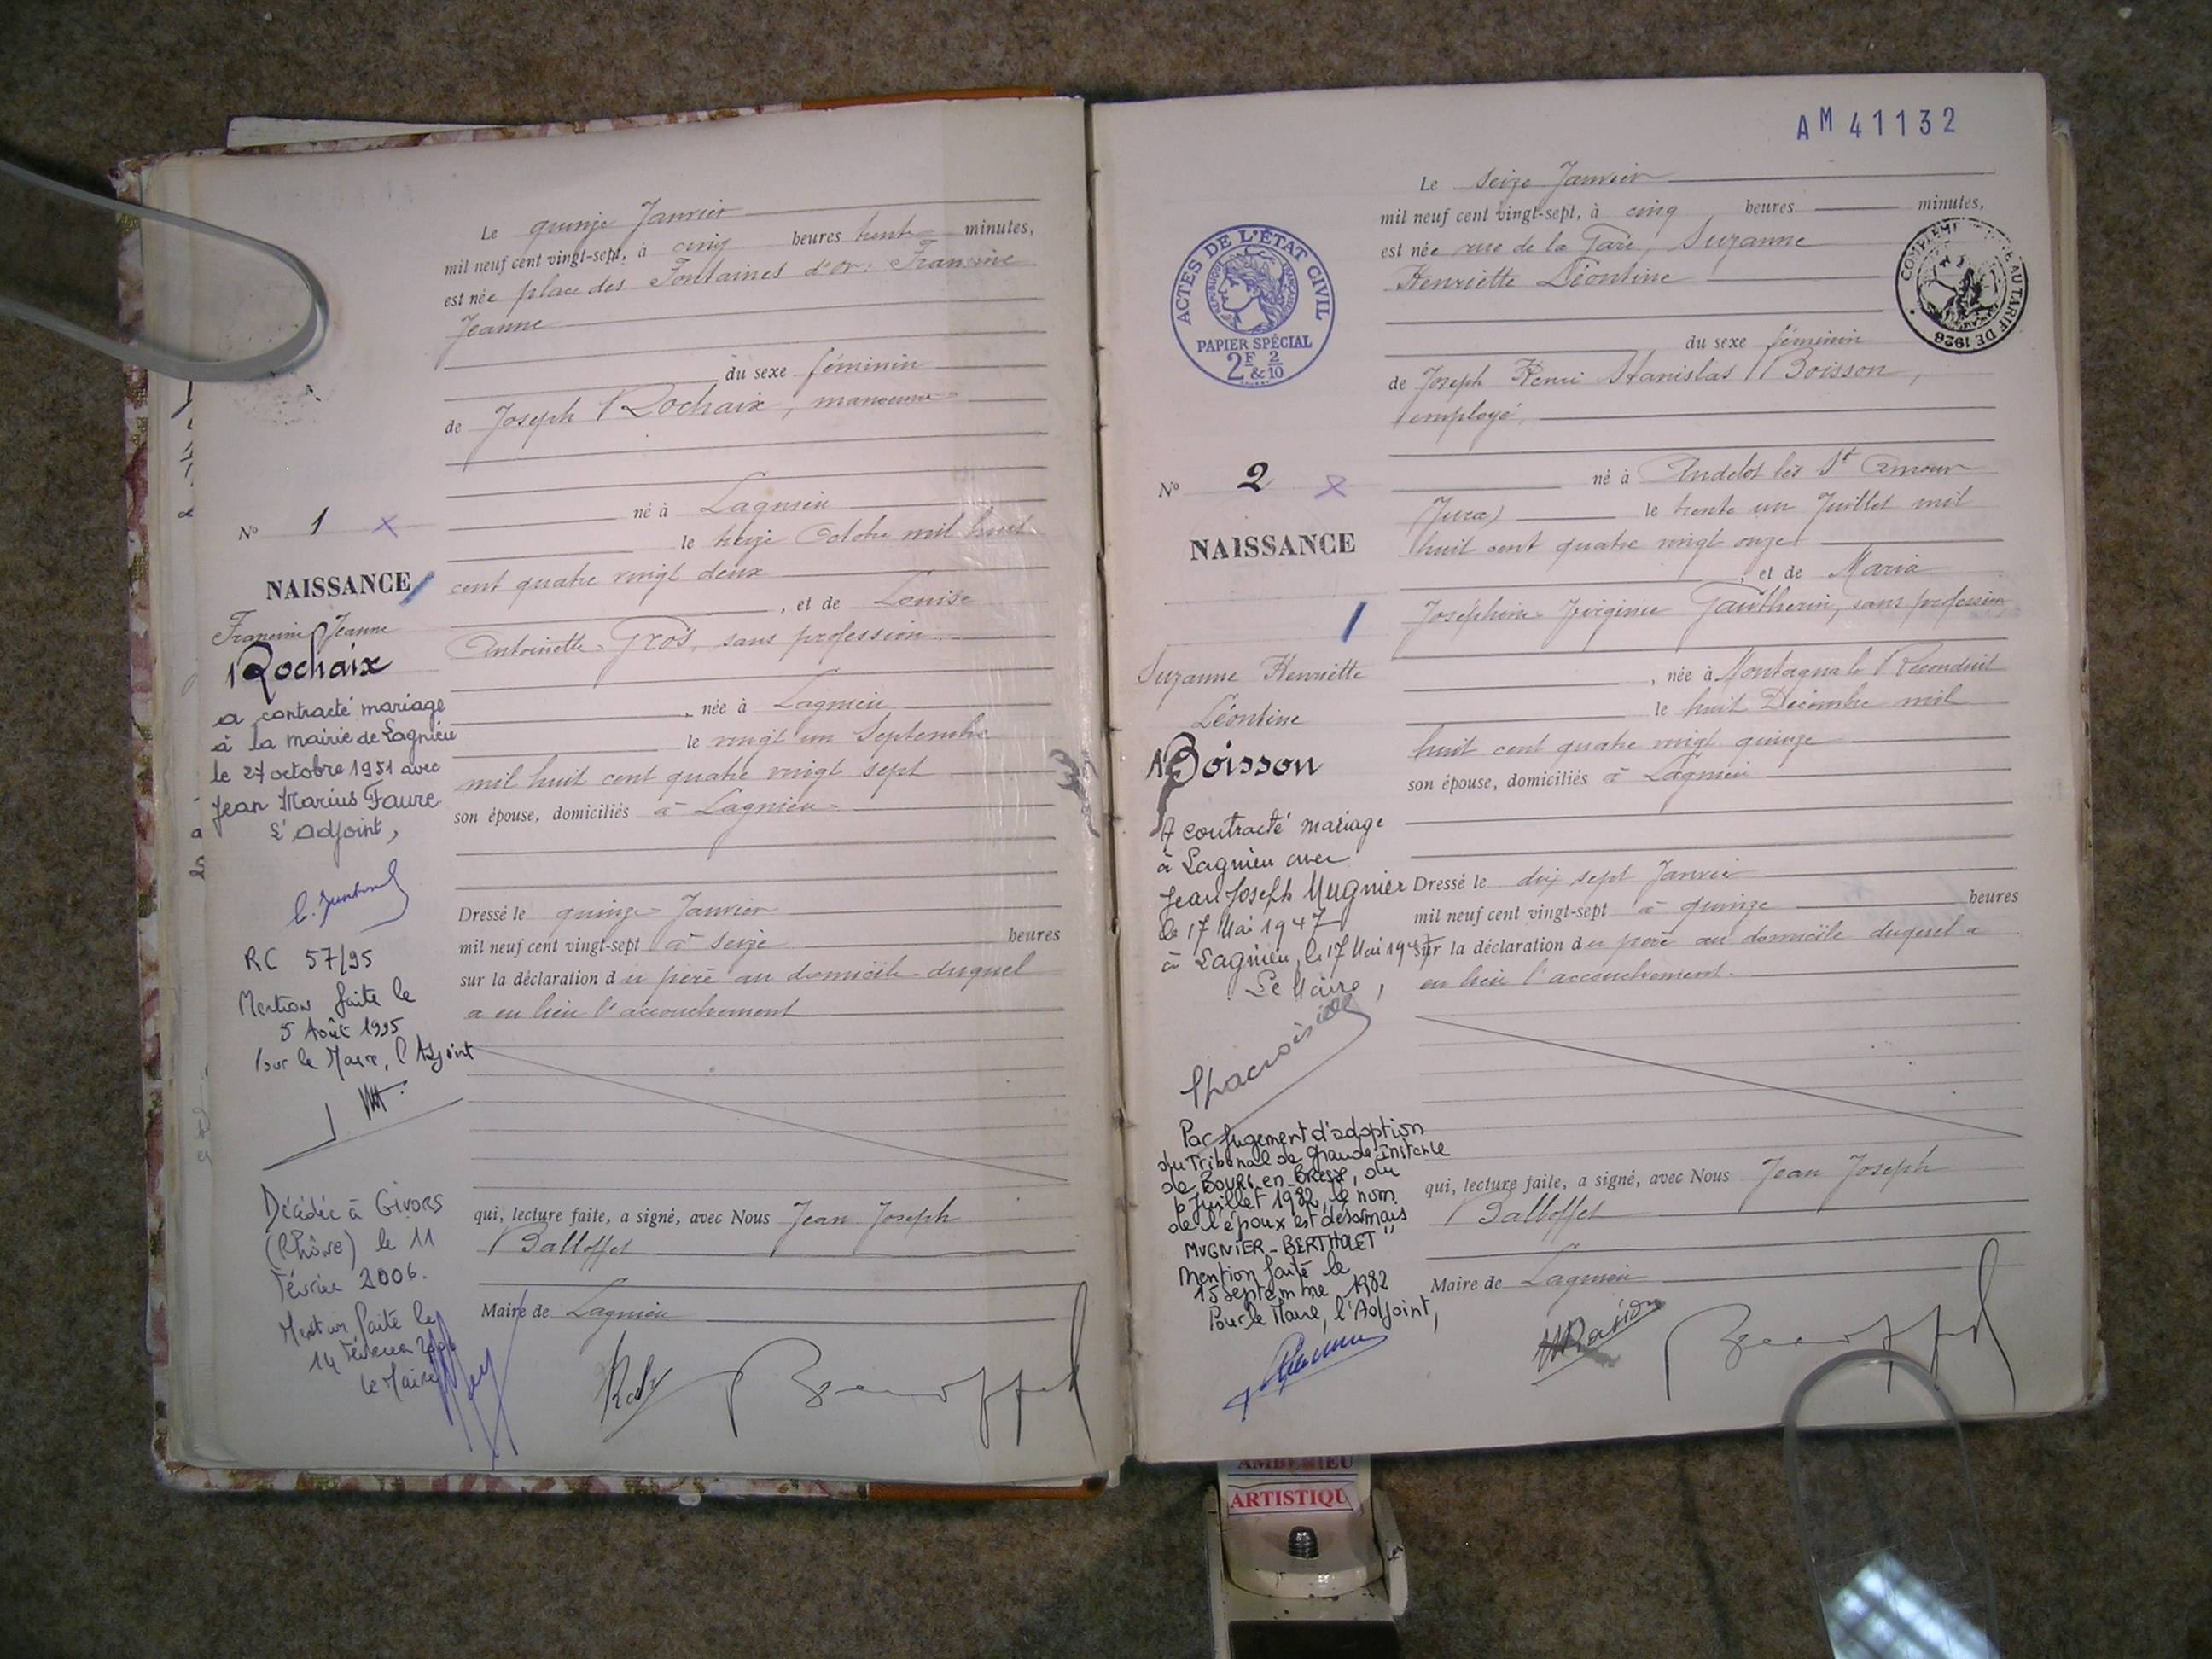 Le quinze Janvier
mil neuf cent vingt-sept, à cinq heures trente minutes,
est née place des Fontaines d'or : Francine
Jeanne
du sexe féminin
de Joseph Rochaix, manœuvre
né à Lagnieu
N° 1
le treize Octobre mil huit
NAISSANCE
cent quatre vingt deux
, et de Louise
Francine Jeanne
Rochaix
Antoinette Gros, sans profession
a contracté mariage
à la mairie de Lagnieu
le 27 octobre 1951 avec
Jean Marius Faure
L'adjoint,
, née à Lagnieu
le vingt un Septembre
mil huit cent quatre vingt sept
son épouse, domiciliés à Lagnieu
Dressé le quinze Janvier
mil neuf cent vingt-sept à seize heures
sur la déclaration du père au domicile duquel
a eu lieu l'accouchement
RC 57/95
Mention faite le
5 Août 1995
Pour le Maire, l'Adjoint
Décédée à Givors
(Rhône) le 11
Février 2006.
Mention faite le
14 Février 2006
le Maire
qui, lecture faite, a signé, avec Nous Jean Joseph
Balloffet
Maire de Lagnieu
AM 41132
Le seize Janvier
mil neuf cent vingt-sept, à cinq heures minutes,
est née rue de la Gare, Suzanne
Henriette Léontine
ACTES DE L'ÉTAT CIVIL
RÉPUBLIQUE FRANÇAISE
PAPIER SPÉCIAL
2F & 2/10
AU TARIF DE 1926
du sexe féminin
de Joseph Henri Stanislas Boisson,
employé,
N° 2
né à Andelot lès St Amour
(Jura) le trente un Juillet mil
NAISSANCE
huit cent quatre vingt onze
, et de Maria
Joséphine Virginie Gautherin, sans profession
Suzanne Henriette
Léontine
Boisson
, née à Montagna le Reconduit
le huit Décembre mil
huit cent quatre vingt quinze
son épouse, domiciliés à Lagnieu
A contracté mariage
à Lagnieu avec
Jean Joseph Mugnier
le 17 Mai 1947
à Lagnieu, le 17 Mai 1947
Le Maire,
Dressé le dix sept Janvier
mil neuf cent vingt-sept à quinze heures
sur la déclaration du père au domicile duquel a
eu lieu l'accouchement.
Par jugement d'adoption
du Tribunal de Grande Instance
de BOURG-en-BRESSE, du
6 Juillet 1982, le nom
de l'époux est désormais
MUGNIER-BERTHOLET"
Mention faite le
15 septembre 1982
Pour le Maire, l'Adjoint,
qui, lecture faite, a signé, avec Nous Jean Joseph
Balloffet
Maire de Lagnieu
AMBERIEU
ARTISTIQU